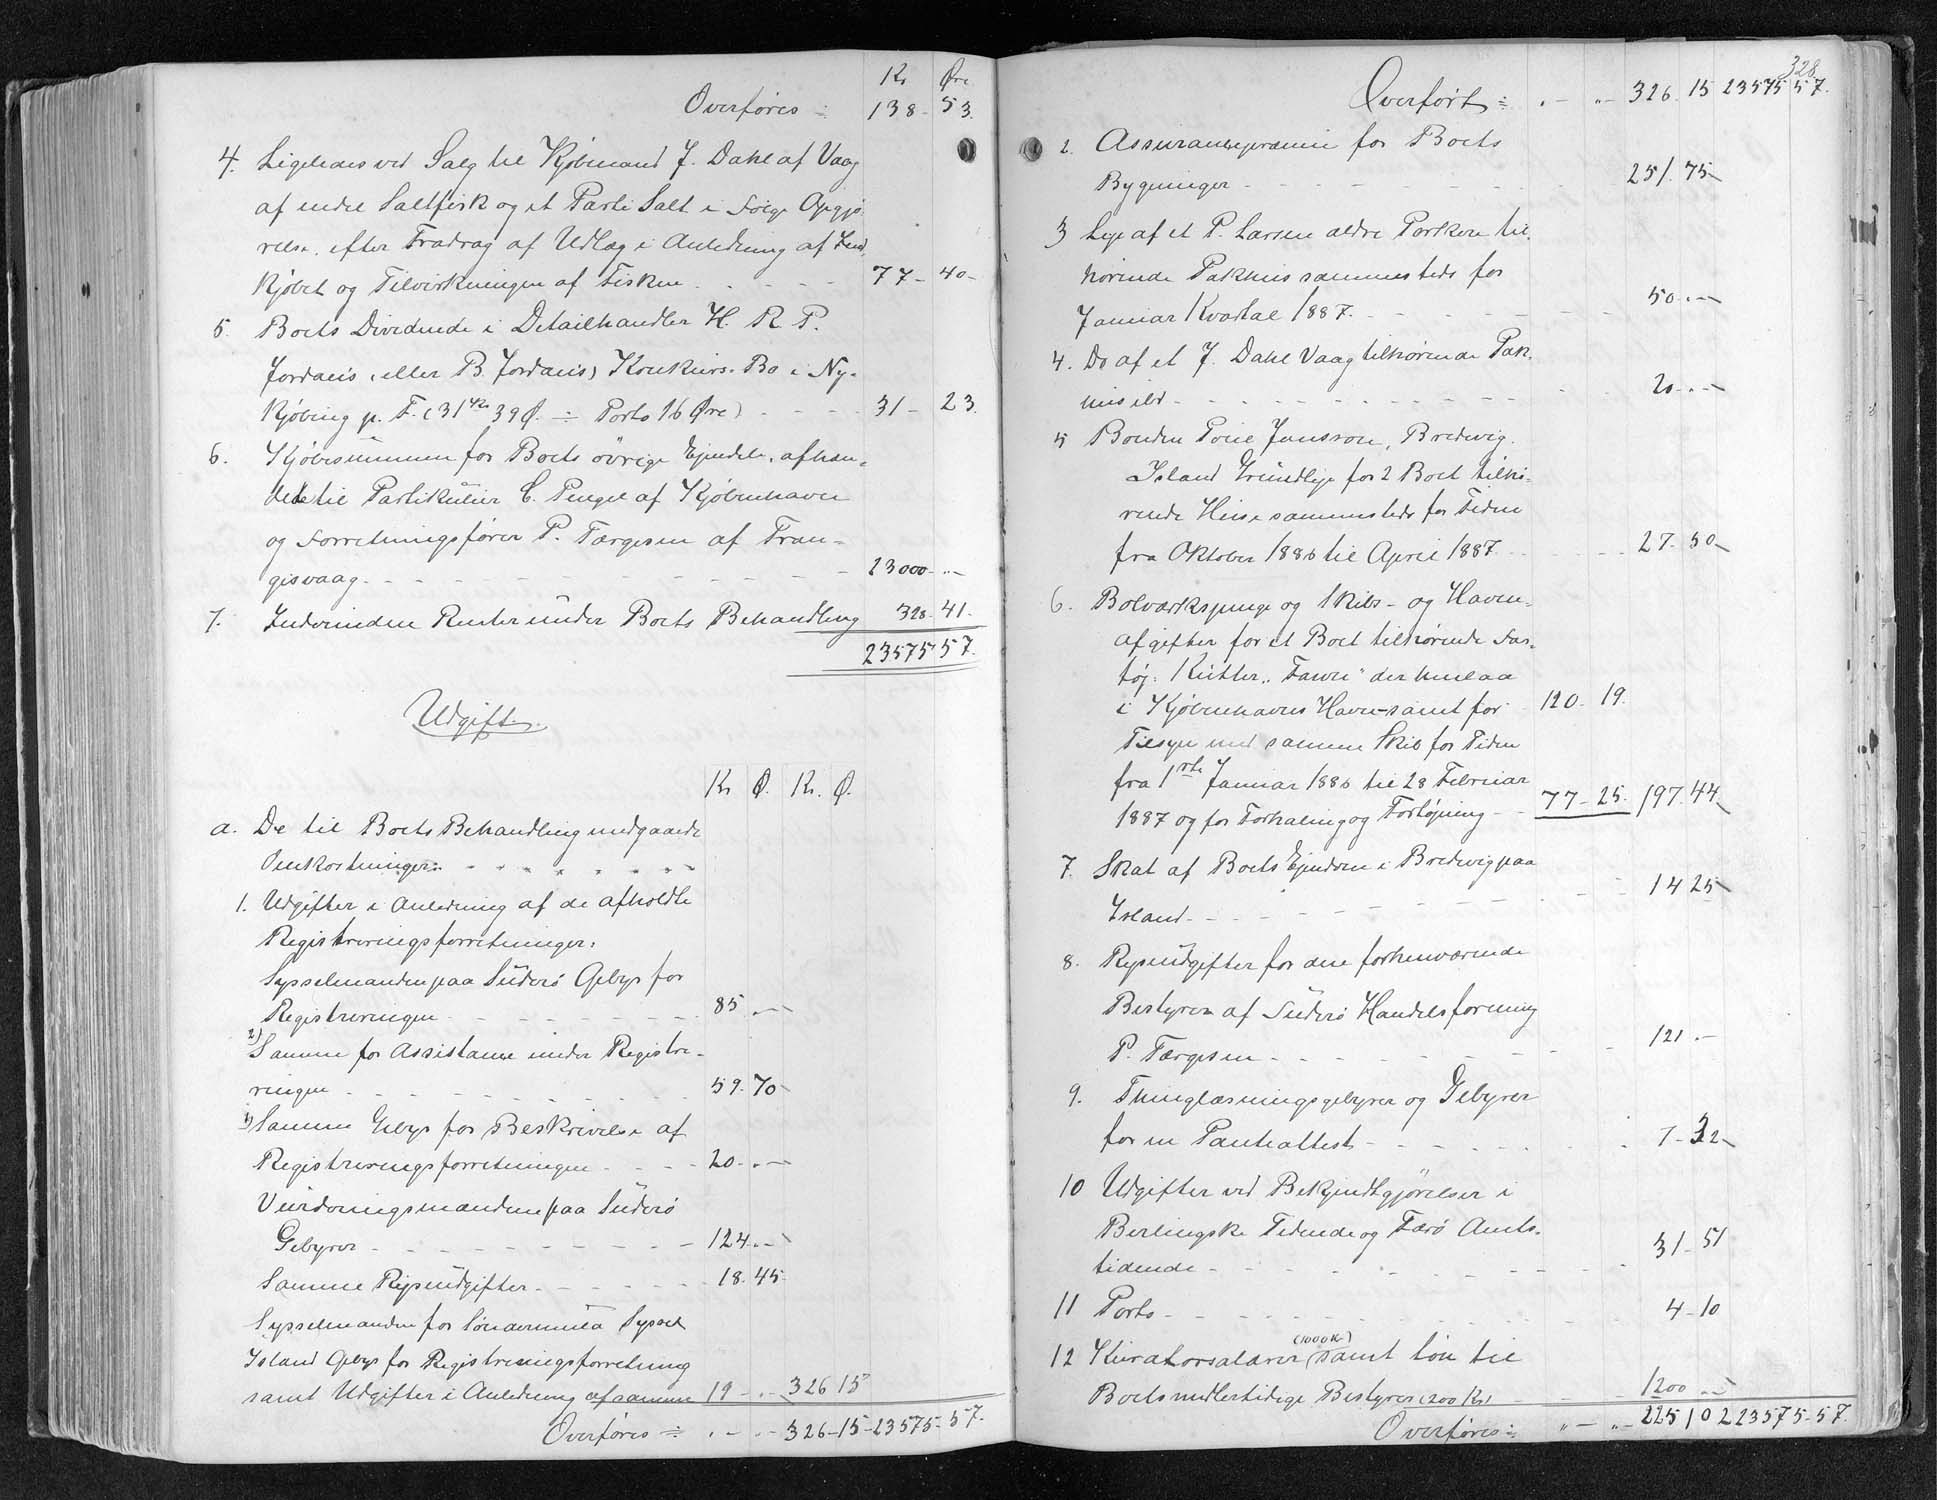 Kr Øre
Overføres ÷ 138 - 53.
4. Ligeledes ved Salg til Kjøbmand J. Dahl af Vaag
af endel Saltfisk og et Parti Salt i Følge Opgjø-
relse, efter Fradrag af Udlæg i Anledning af Ind-
kjøbet og Tilvirkningen af Fisken - - - - 77 - 40 -
5. Boets Dividende i Detailhandler H. R. P.
Jordan's, (eller B. Jordan's) Konkurs-Bo i Ny-
kjøbing p. F. (31 Kr 39 Ø. ÷ Porto 16 Øre) - - - - 31 - 23.
6. Kjøbesummen for Boets øvrige Ejendele, afhæn-
dede til Partikulier C. Pengel af Kjøbenhavn
og Forretningsfører P. Tærgesen af Tran-
gisvaag - - - - - - - - - 23000 - " -
7. Indvundne Renter under Boets Behandling 328 - 41.
23575 57.
Udgift.
Kr Ø. Kr. Ø.
a. De til Boets Behandling medgaaede
Omkostninger: - - - - - - -
1. Udgifter i Anledning af de afholdte
Registreringsforretninger:
Sysselmanden paa Suderø Gebyr for
Registreringen - - - - - - - 85 . " -
2) Samme for Assistance under Registre-
ringen - - - - - - - - - 59 - 70 -
3) Samme Gebyr for Beskrivelse af
Registreringsforretningen - - - - 20 - " -
Vurderingsmændene paa Suderø
Gebyrer - - - - - - - - - 124 . " -
Samme Rejseudgifter - - - - - - 18 - 45 -
Sysselmanden for Søndermula Syssel
Island Gebyr for Registreringsforretning
samt Udgifter i Anledning af samme 19 - " - 326 15
Overføres ÷ " - " - 326 - 15 - 23575 - 57.
328
Overført ÷ " - " - 326 . 15 23575 57.
2. Assurancepræmie for Boets
Bygninger - - - - - - - - 251 . 75 -
3 Leje af et P. Larsen ældre Porkere til-
hørende Pakhus sammesteds for
Januar Kvartal 1887. - - - - - - 50 . " -
4. Do af et J. Dahl Vaag tilhørende Pak-
hus ibd - - - - - - - - - - - 20 . " -
5 Bonden Jonsson, Bredevig.
Island Grundleje for 2 Boet tilhø-
rende Huse sammesteds for Tiden
fra Oktober 1886 til April 1887 - - - - 27 . 50 -
6. Bolværkspenge og Skibs- og Havne-
afgifter for et Boet tilhørende Far-
tøj: Kutter "Fawn" der henlaa
i Kjøbenhavns Havn - samt for - 120 - 19.
Tilsyn med samme Skib for Tiden
fra 1ste Januar 1886 til 28 Februar
1887 og for Forhaling og Fortøjning - - 77 - 25. 197 . 44
7. Skat af Boets Ejendom i Bredevig paa
Island - - - - - - - - - - - 14 25
8. Rejseudgifter for den forhenværende
Bestyrer af Suderø Handelsforening
P. Tærgesen - - - - - - - - - 121 . -
9. Thinglæsningsgebyrer og Gebyrer
for en Panteattest - - - - - - - 7 - 32 -
10 Udgifter ved Bekjendtgjørelser i
Berlingske Tidende og Færø Amts-
tidende - - - - - - - - - - 31 - 51
11 Porto - - - - - - - - - - - 4 - 10
12 Kuratorsalærer (1000 Kr) samt Løn til
Boets midlertidige Bestyrer (200 Kr) - - - 1200 " -
Overføres ÷ " - " - 2251 02 23575 - 57.